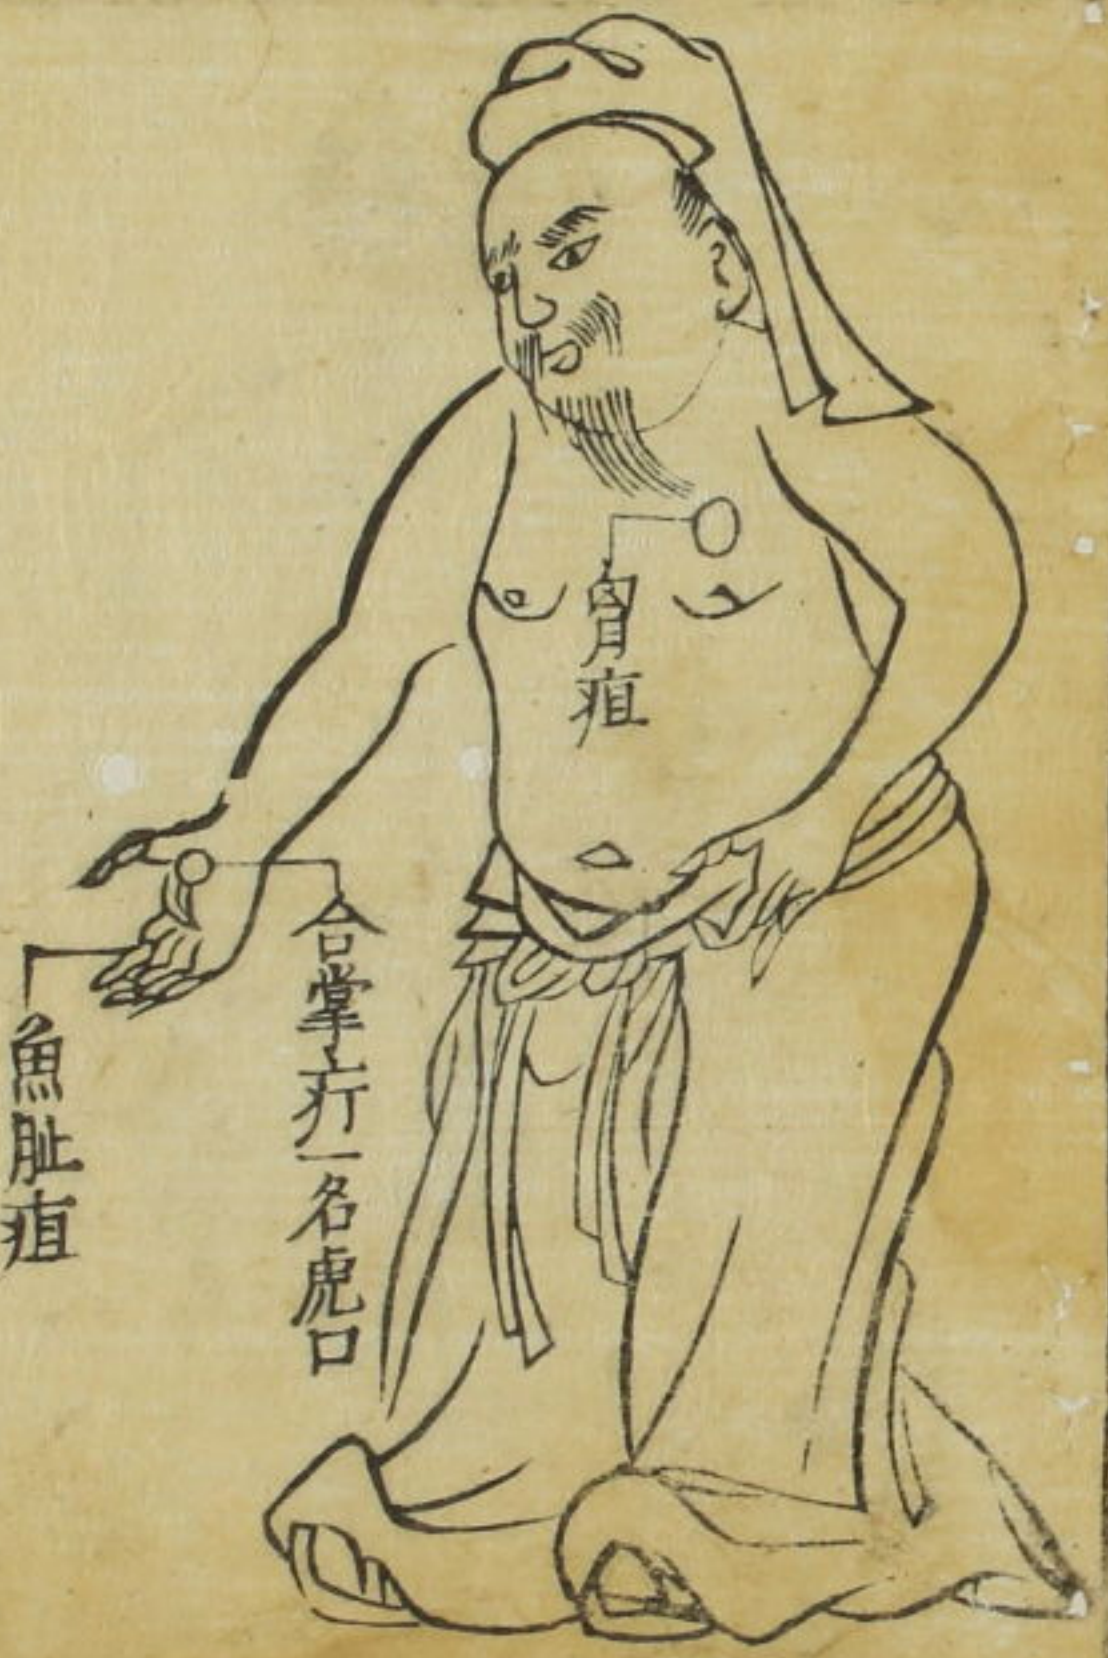 胷疽
合掌疔一名虎口
魚疽